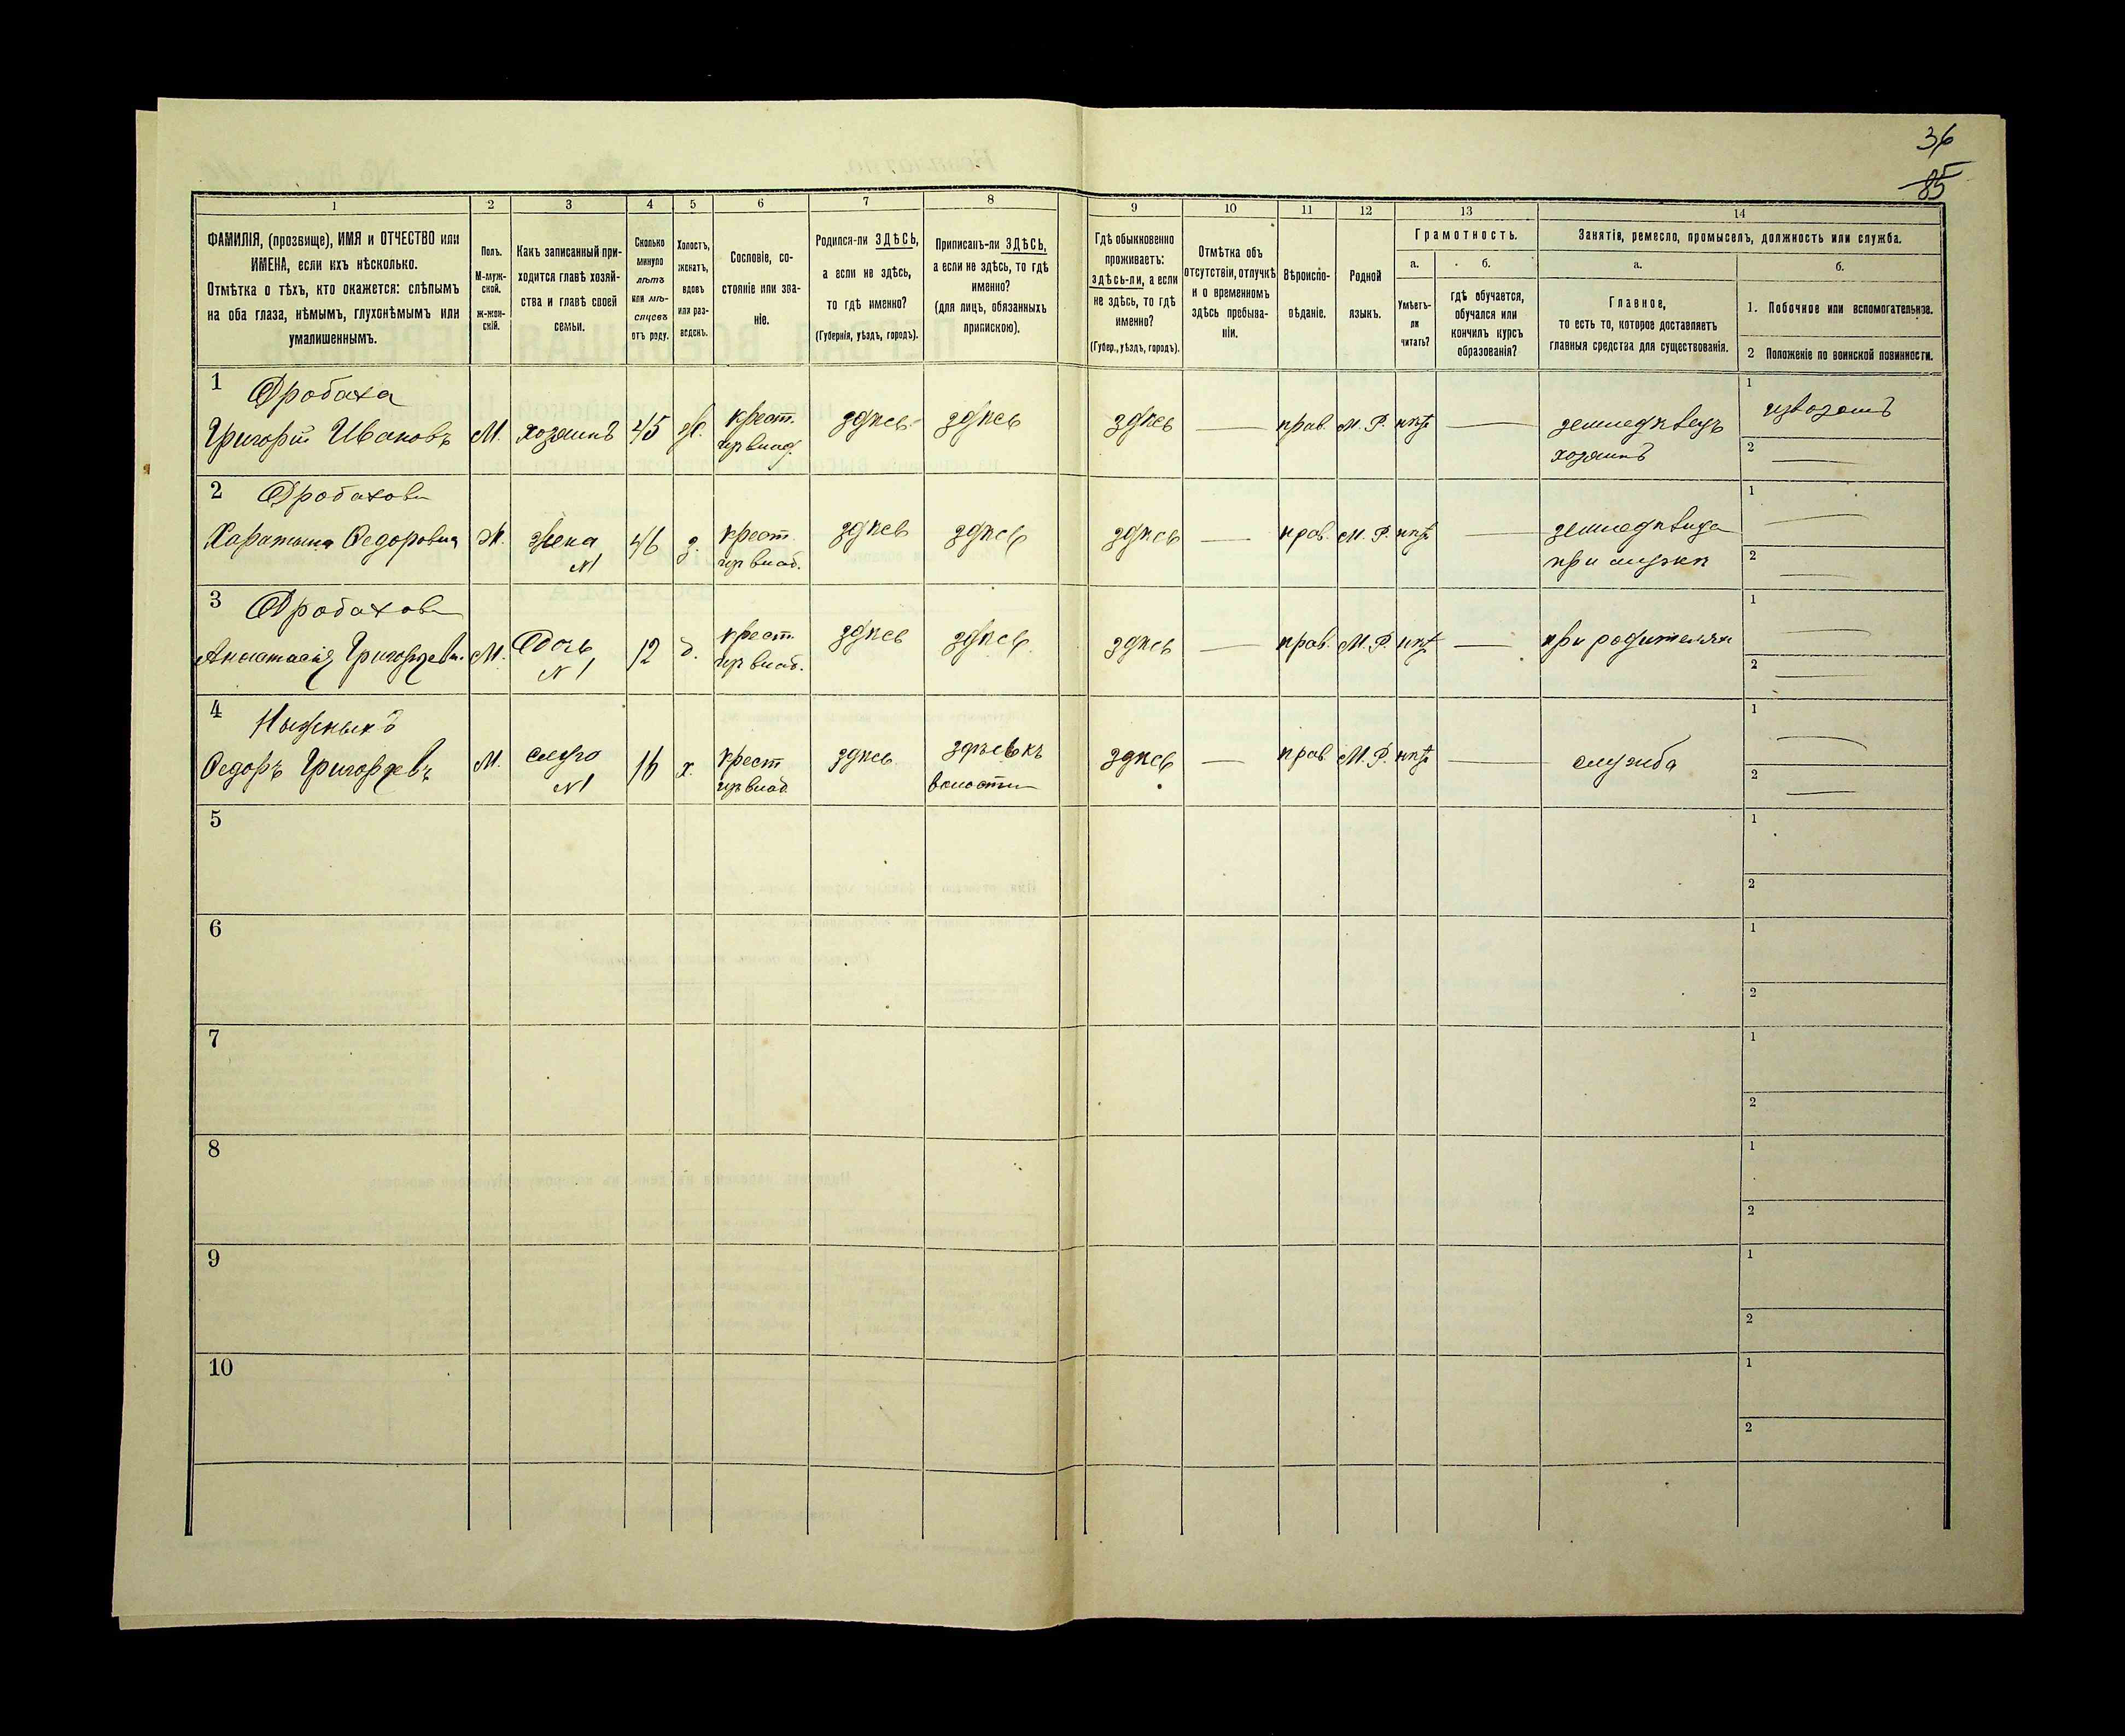 36
85
1
2
3
4
5
6
7
8
9
10
11
12
13
14
ФАМИЛІЯ, (прозвище), ИМЯ и ОТЧЕСТВО или
ИМЕНА, если ихъ нѣсколько.
Отмѣтка о тѣхъ, кто окажется: слѣпымъ
на оба глаза, нѣмымъ, глухонѣмымъ или
умалишеннымъ.
Полъ.
М-муж-
ской.
Ж-жен-
скій.
Какъ записанный при-
ходится главѣ хозяй-
ства и главѣ своей
семьи.
Сколько
минуло
лѣтъ
или мѣ-
сяцевъ
отъ роду.
Холостъ,
женатъ,
вдовъ
или раз-
веденъ.
Сословіе, со-
стояніе или зва-
ніе.
Родился-ли ЗДѢСЬ,
а если не здѣсь,
то гдѣ именно?
(Губернія, уѣздъ, городъ).
Приписанъ-ли ЗДѢСЬ,
а если не здѣсь, то гдѣ
именно?
(для лицъ, обязанныхъ
припискою).
Гдѣ обыкновенно
проживаетъ:
здѣсь-ли, а если
не здѣсь, то гдѣ
именно?
(Губер., уѣздъ, городъ).
Отмѣтка объ
отсутствіи, отлучкѣ
и о временномъ
здѣсь пребыва-
ніи.
Вѣроиспо-
вѣданіе.
Родной
языкъ.
Грамотность.
а.
Умѣетъ-
ли
читать?
б.
гдѣ обучается,
обучался или
кончилъ курсъ
образованія?
Занятія, ремесло, промыселъ, должность или служба.
а.
Главное,
то есть то, которое доставляетъ
главныя средства для существованія.
б.
1. Побочное или вспомогательное.
2 Положеніе по воинской повинности.
1 Дробаха
Григорій Ивановъ М. хозяинъ 45 ж. крест. изъ влад. здѣсь здѣсь здѣсь — прав. М. Р. нѣтъ — земледѣлецъ хозяинъ
1 извозомъ
2 —
2 Дробахова
Харатына Федоровна Ж. жена №1 46 з. крест. изъ влад. здѣсь здѣсь здѣсь — прав. М. Р. нѣтъ — земледѣлица при мужѣ
1 —
2 —
3 Дробахова
Анастасія Григорьева М. дочь №1 12 д. крест. изъ влад. здѣсь здѣсь здѣсь — прав. М. Р. нѣтъ — при родителяхъ
1 —
2 —
4
Федоръ Григорьевъ М. слуга №1 16 х. крест изъ влад. здѣсь волости здѣсь — прав М. Р. нѣтъ — служба
1 —
2 —
5
1
2
6
1
2
7
1
2
8
1
2
9
1
2
10
1
2